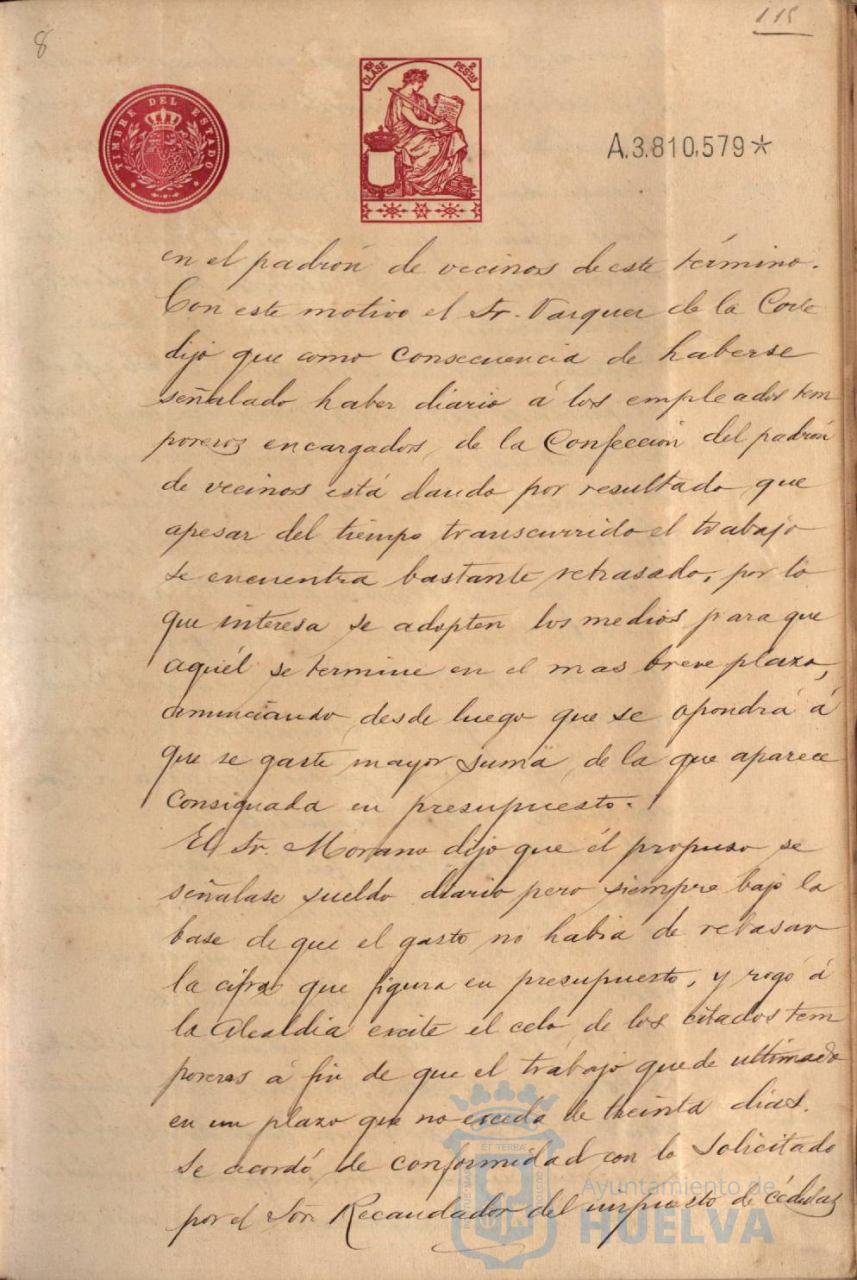 8
115
TIMBRE DEL ESTADO
10ª CLASE 2 PESTAS
A.3.810,579*
en el padrón de vecinos de este término.
Con este motivo el Sr. Vazquez de la Corte
dijo que como consecuencia de haberse
señalado haber diario á los empleados tem
poreros encargados de la Confección del padrón
de vecinos está dando por resultado que
apesar del tiempo transcurrido el trabajo
se encuentra bastante retrasado, por lo
que interesa se adopten los medios para que
aquél se termine en el mas breve plazo,
anunciando desde luego que se opondrá á
que se gaste mayor suma de la que aparece
consignada en presupuesto.
El Sr. Morano dijo que él propuso se
señalase sueldo diario pero siempre bajo la
base de que el gasto no habia de rebasar
la cifra que figura en presupuesto, y rogó á
la Alcaldia excite el celo de los citados tem
poreros á fin de que el trabajo quede ultimado
en un plazo que no exceda de treinta dias.
Se acordó de conformidad con lo solicitado
por el Sor. Recaudador del impuesto de cédulas
Ayuntamiento de
HUELVA